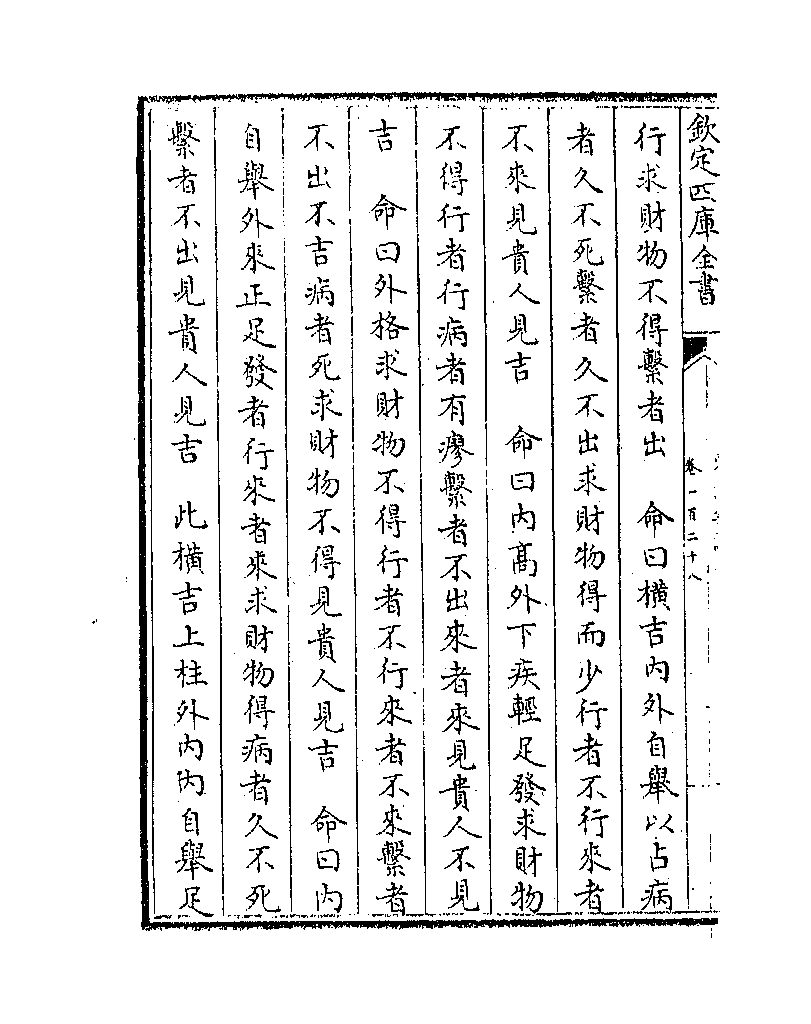 欽定四庫全書
卷一百二十八
行求財物不得繫者出　命曰橫吉內外自舉以占病
者久不死繫者久不出求財物得而少行者不行來者
不來見貴人見吉　命曰內高外下疾輕足發求財物
不得行者行病者有瘳繫者不出來者來見貴人不見
吉　命曰外格求財物不得行者不行來者不來繫者
不出不吉病者死求財物不得見貴人見吉　命曰內
自舉外來正足發者行來者來求財物得病者久不死
繫者不出見貴人見吉　此橫吉上柱外內內自舉足